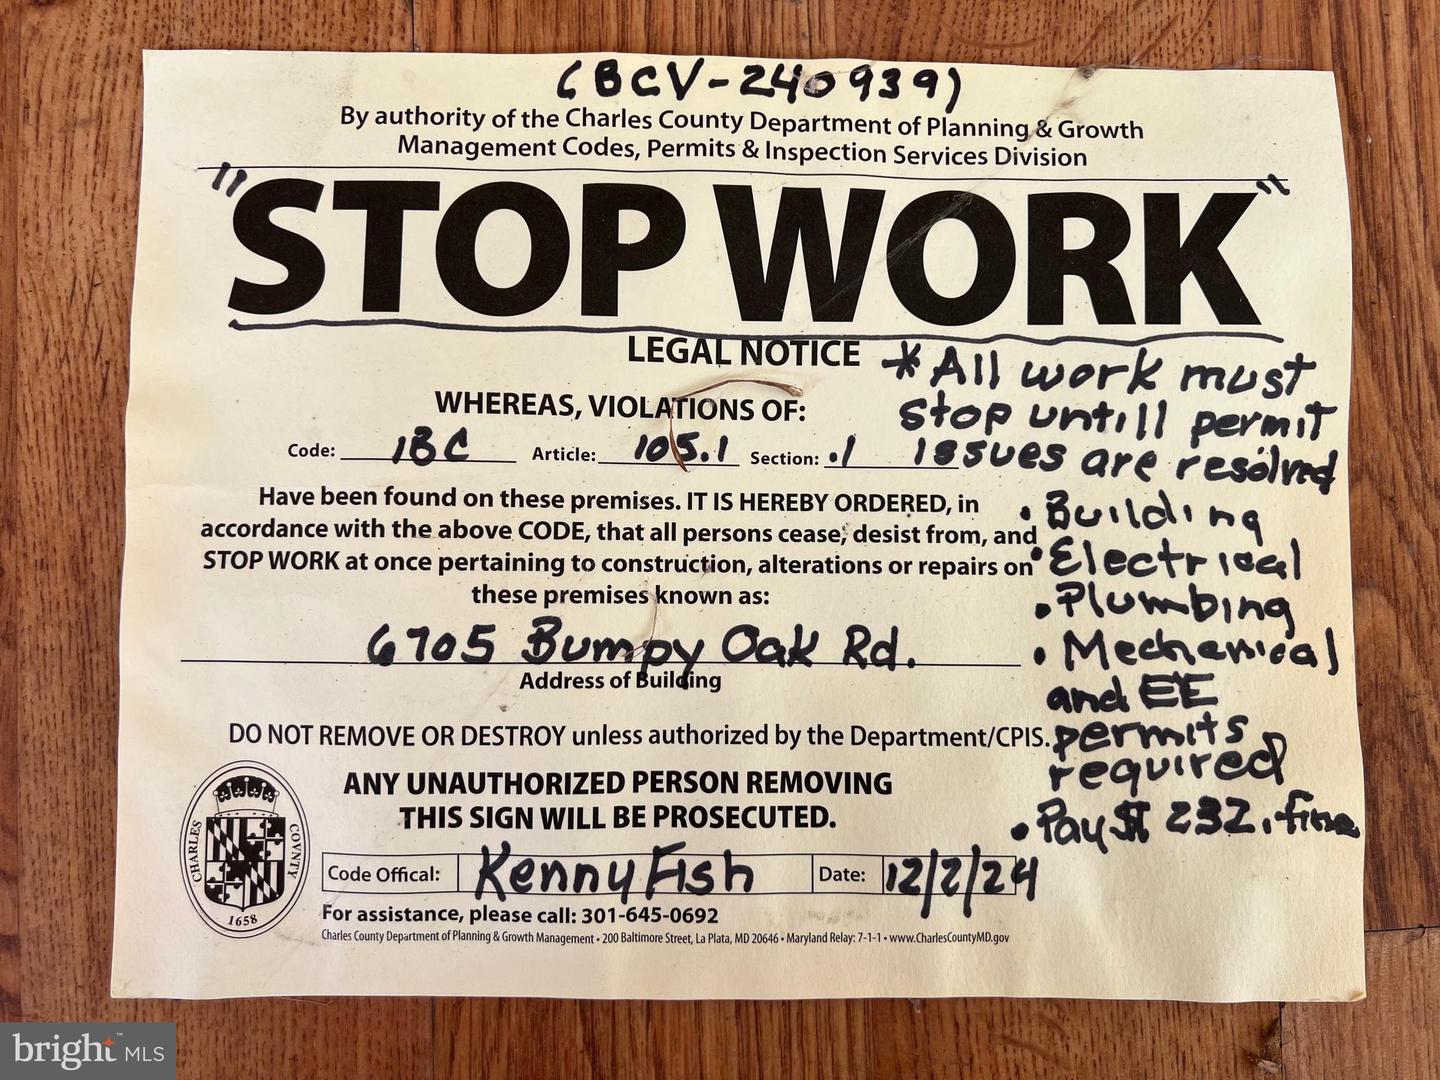 (BCV-240939)
By authority of the Charles County Department of Planning & Growth
Management Codes, Permits & Inspection Services Division
"STOP WORK"
LEGAL NOTICE
* All work must
stop untill permit
issues are resolved
• Building
• Electrical
• Plumbing
• Mechanical
and EE
permits
required
• Pay $ 232. fine
WHEREAS, VIOLATIONS OF:
Code: IBC Article: 105.1 Section: .1
Have been found on these premises. IT IS HEREBY ORDERED, in
accordance with the above CODE, that all persons cease, desist from, and
STOP WORK at once pertaining to construction, alterations or repairs on
these premises known as:
6705 Bumpy Oak Rd.
Address of Building
DO NOT REMOVE OR DESTROY unless authorized by the Department/CPIS.
ANY UNAUTHORIZED PERSON REMOVING
THIS SIGN WILL BE PROSECUTED.
CHARLES COVNTY
1658
Code Offical: Kenny Fish Date: 12/2/24
For assistance, please call: 301-645-0692
Charles County Department of Planning & Growth Management • 200 Baltimore Street, La Plata, MD 20646 • Maryland Relay: 7-1-1 • www.CharlesCountyMD.gov
bright™ MLS